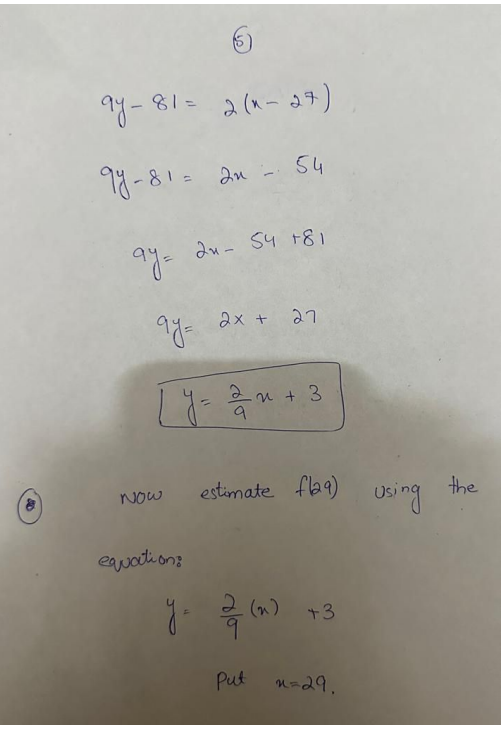 5)
9y - 81 = 2(x - 27)
9y - 81 = 2x - 54
9y = 2x - 54 + 81
9y = 2x + 27
y = 2/9 x + 3
Now estimate f(29) using the
equation:
y = 2/9 (x) + 3
Put x = 29.